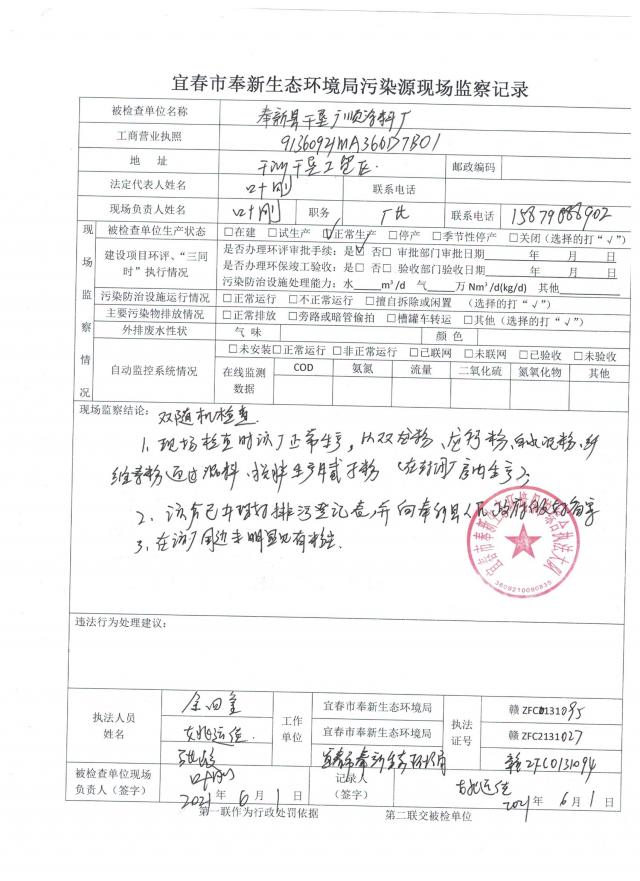 宜春市奉新生态环境局污染源现场监察记录
被检查单位名称 奉新县干垦广顺涂料厂
工商营业执照 91360921MA366D7B01
地 址 干洲干垦工业区 邮政编码
法定代表人姓名 叶刚 联系电话
现场负责人姓名 叶刚 职务 厂长 联系电话 15879088902
现场监察情况
被检查单位生产状态 □在建 □试生产 ☑正常生产 □停产 □季节性停产 □关闭(选择的打“√”)
建设项目环评、“三同时”执行情况
是否办理环评审批手续:是☑ 否□ 审批部门审批日期 年 月 日
是否办理环保竣工验收:是□ 否□ 验收部门验收日期 年 月 日
污染防治设施处理能力:水 m³/d 气 万 Nm³/d(kg/d) 其他
污染防治设施运行情况 □正常运行 □不正常运行 □擅自拆除或闲置 (选择的打“√”)
主要污染物排放情况 □正常排放 □旁路或暗管偷拍 □槽罐车转运 □其他(选择的打“√”)
外排废水性状 气 味 颜 色
自动监控系统情况
□未安装□正常运行 □非正常运行 □已联网 □未联网 □已验收 □未验收
在线监测数据 COD 氨氮 流量 二氧化硫 氮氧化物 其他
现场监察结论: 双随机检查.
1、现场检查时该厂正常生产,以双飞粉、
维素粉通过混料、搅拌生产腻子粉
2、该厂已办理排污登记
3、在该厂周边未明显
3609210090835
违法行为处理建议:
执法人员姓名 工作单位 宜春市奉新生态环境局 执法证号 赣 ZFC0131095
宜春市奉新生态环境局 赣 ZFC2131027
宜春市奉新生态环境局 赣ZFC0131094
被检查单位现场负责人(签字) 叶刚 2021 年 6 月 1 日
记录人(签字) 2021 年 6 月 1 日
第一联作为行政处罚依据 第二联交被检单位